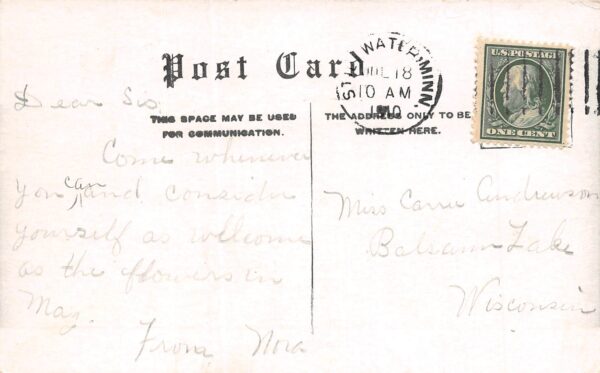 Post Card
STILLWATER, MINN.
JUL 18
10 AM
1910
U.S. POSTAGE
ONE CENT
THIS SPACE MAY BE USED
FOR COMMUNICATION.
THE ADDRESS ONLY TO BE
WRITTEN HERE.
Dear Sis
Come whenever
you can and consider
yourself as wellcome
as the flowers in
May.
From Nora
Miss Carrie Anderson
Balsam Lake
Wisconsin